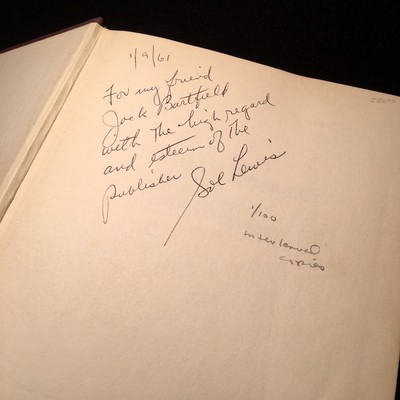 1/9/61
For my friend
Jack Bartfield
with the high regard
and esteem of the
publisher Sol Lewis
1/100
interleaved
copies